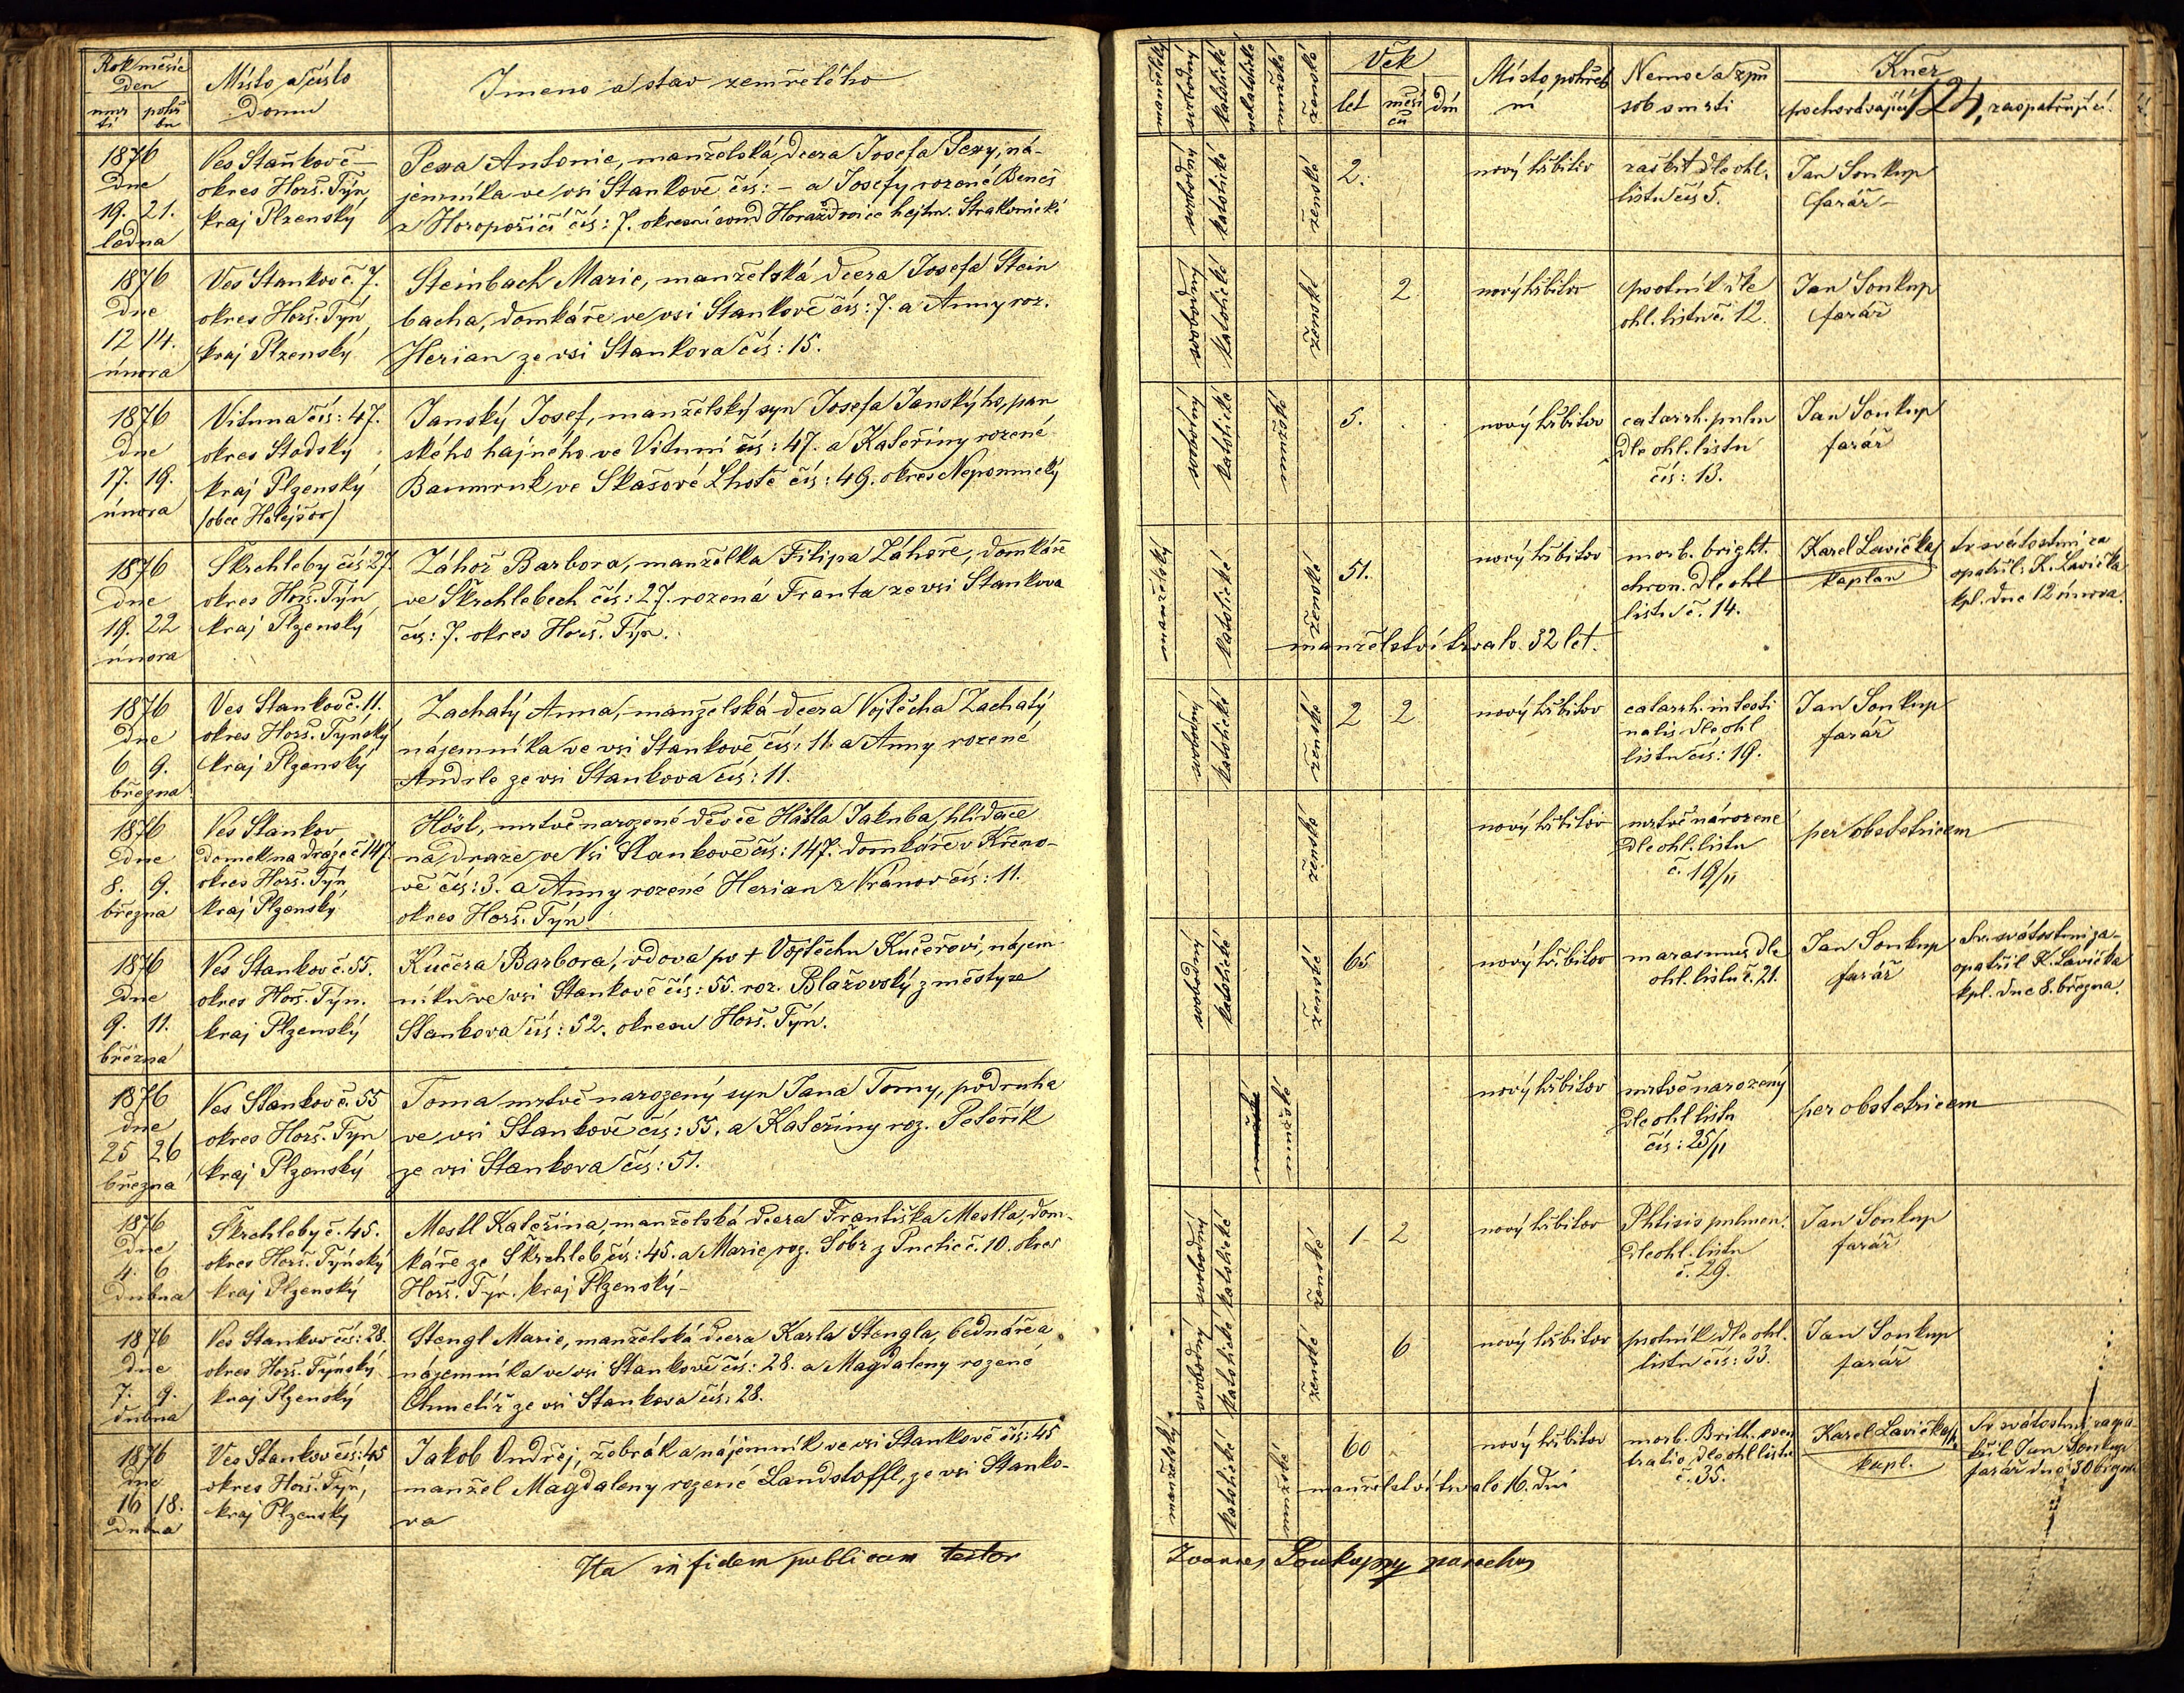 Rok měsíc
Den
úmrtí
pohřbu
Místo a číslo
domu
Jmeno a stav zemřelého
manželský
svobodný
katolické
nekatolické
mužské
ženské
Věk
let
měsíců
dní
Místo pohřeb
ní
Nemoc a způ
sob smrti
Kněz
pochovávající
124,
zaopatřující
1876
dne
19. 21.
ledna
Ves Staňkov č –
okres Horš. Týn
kraj Plzenský
Pexa Antonie, manželská dcera Josefa Pexy, ná-
jemníka ve vsi Stankově čís: – a Josefy rozené Beneš
z Horopořičí čís: 7. okresní soud Horažďovice hejtm. Strakonické
svobodný
katolické
ženské
2.
nový hřbitov
zaškrt dle ohl.
listu čís 5.
Jan Soukup
farář –
1876
dne
12 14.
února
Ves Stankov č. 7.
okres Horš. Týn
kraj Plzenský
Steinbach Marie, manželská dcera Josefa Stein
bacha, domkáře ve vsi Stankově čís: 7. a Anny roz.
Herian ze vsi Stankova čís: 15.
svobodný
katolické
ženské
2
nový hřbitov
psotník dle
ohl. listu č. 12.
Jan Soukup
farář
1876
dne
17. 19.
února
Vituna čís: 47.
okres Stodský
kraj Plzenský
/obec Holejšov/
Janský Josef, manželský syn Josefa Janskýho, pan
ského hajného ve Vituni čís: 47. a Kateřiny rozené
Baumruk ve Skašové Lhotě čís: 49. okres Nepomucký
svobodný
katolické
mužské
5.
nový hřbitov
catarrh. pulm
dle ohl. listu
čís: 13.
Jan Soukup
farář
1876
dne
19. 22
února
Škrchleby čís 27
okres Horš. Týn
kraj Plzenský
Záhoř Barbora, manželka Filipa Záhoře, domkáře
ve Škrchlebech čís: 27. rozená Franta ze vsi Stankova
čís: 7. okres Horš. Týn.
manželský
katolické
ženské
51.
manželství trvalo 32 let.
nový hřbitov
morb. bright.
chron. dle ohl
listu č. 14.
Karel Lavička
kaplan
Sv. svátostmi za
opatřil: K. Lavička
kpl. dne 12 února.
1876
dne
6 9.
března
Ves Stankov č. 11.
okres Horš. Týnský
kraj Plzenský
Zachatý Anna, manželská dcera Vojtěcha Zachatý
nájemníka ve vsi Stankově čís: 11. a Anny rozené
Andrle ze vsi Stankova čís: 11.
svobodný
katolické
ženské
2 2
nový hřbitov
catarrh. intesti
nalis dle ohl
listu čís: 19.
Jan Soukup
farář
1876
dne
8. 9.
března
Ves Stankov
domek na dráze č 147.
okres Horš. Týn
kraj Plzenský
Hösl, mrtvě narozené děvče Hösla Jakuba, hlídače
na draze ve Vsi Stankově čís: 147. domkáře v Křeno-
vě čís: 3. a Anny rozené Herian z Vránov čís: 11.
okres Horš. Týn
ženské
nový hřbitov
mrtvě národené
dle ohl. listu
č. 19/II
per obstetricem
1876
dne
9. 11.
března
Ves Stankov č. 55.
okres Horš. Týn.
kraj Plzenský
Kučera Barbora, vdova po + Vojtěchu Kučerovi, nájem
níku ve vsi Stankově čís: 55. roz. Blažovský z městyse
Stankova čís: 52. okresu Horš. Týn.
svobodný
katolické
ženské
65
nový hřbitov
marasmus dle
ohl. listu č. 21.
Jan Soukup
farář
Sv. svátostmi za-
opatřil K. Lavička
kpl. dne 8. března.
1876
dne
25 26
března
Ves Stankov č. 55
okres Horš. Týn
kraj Plzenský
Toma mrtvě narozený syn Jana Tomy, podruha
ve vsi Stankově čís: 55. a Kateřiny roz. Peteřík
ze vsi Stankova čís: 51.
mužské
nový hřbitov
mrtvě narozený
dle ohl listu
čís: 25/II
per obstetricem
1876
dne
4. 6
dubna
Škrchleby č. 45.
okres Horš. Týnský
kraj Plzenský
Mestl Kateřina, manželská dcera Františka Mestla, dom-
káře ze Škrchleb čís: 45. a Marie, roz. Šobr z Puclic č. 10. okres
Horš. Týn. kraj Plzenský –
svobodný
katolické
ženské
1 2
nový hřbitov
Phtisis pulmon.
dle ohl. listu
č. 29.
Jan Soukup
farář
1876
dne
7. 9.
dubna
Ves Stankov čís: 28.
okres Horš. Týnský
kraj Plzenský
Stengl Marie, manželská dcera Karla Stengla, bednáře a
nájemníka ve vsi Stankově čís: 28. a Magdaleny rozené
Chmelíř ze vsi Stankova čís: 28.
svobodný
katolické
ženské
6
nový hřbitov
psotník dle ohl.
listu čís: 33.
Jan Soukup
farář
1876
dne
16 18.
dubna
Ves Stankov čís: 45
okres Horš. Týn,
kraj Plzenský
Jakob Ondřej, žebrák a nájemník ve vsi Stankově čís: 45
manžel Magdaleny rozené Landstoffl, ze vsi Stanko-
va
manželský
katolické
mužské
60
manželství trvalo 16. dní
nový hřbitov
morb. Brith.
dle ohl listu
č. 35.
Karel Lavička
kapl.
Sv. svátostmi zaopa
třil Jan Soukup
farář dne 30 března
Ita in fidem publicam testor
Joannes Soukup parochus